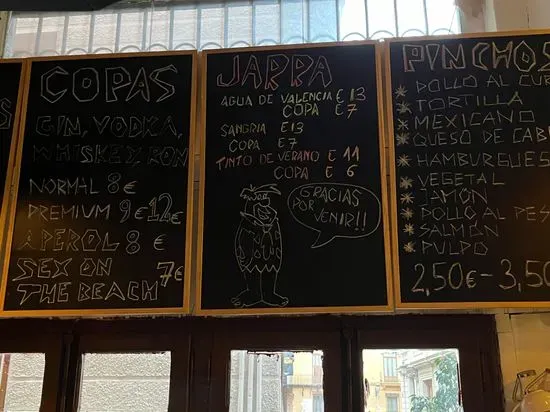 COPAS
GIN, VODKA,
WHISKEY, RON
NORMAL 8€
PREMIUM 9€ 12€
APEROL 8€
SEX ON 7€
THE BEACH
JARRA
AGUA DE VALENCIA €13
COPA €7
SANGRIA €13
COPA €7
TINTO DE VERANO €11
COPA €6
GRACIAS
POR
VENIR!!
PINCHOS
POLLO AL
TORTILLA
MEXICANO
QUESO DE
HAMBURGUES
VEGETAL
JAMÓN
POLLO AL
SALMÓN
PULPO
2,50€-3,50